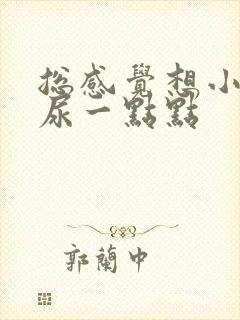 總感覺想小
尿一點點
郭蘭中